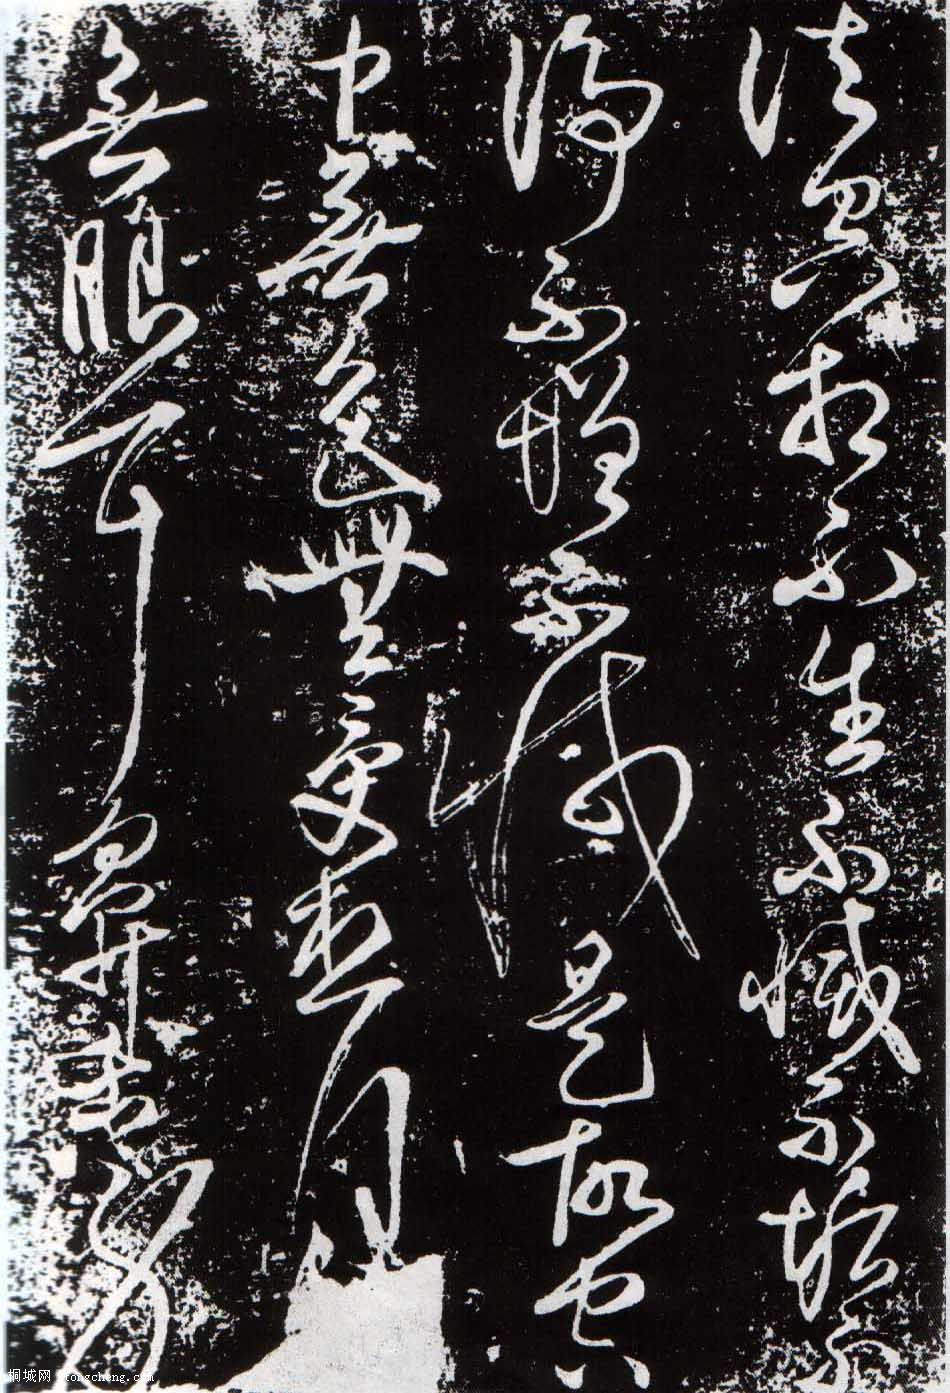 法空相不生不滅不垢不
淨不增不減是故空
中無色無受想行
無眼耳鼻舌身
桐城网 itongcheng.com